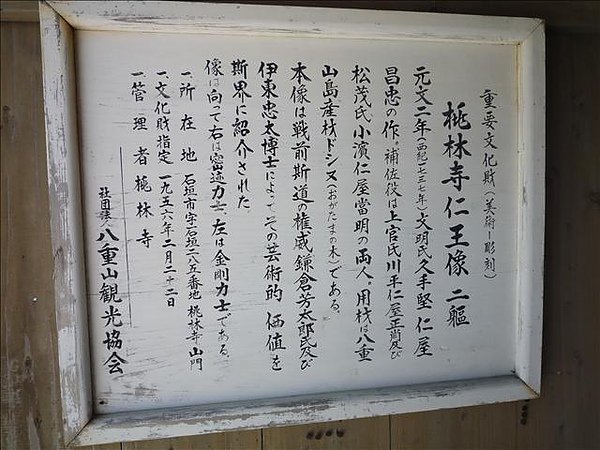 重要文化財(美術ー彫刻)
桃林寺仁王像 二軀
元文二年(西紀一七三七年)文明氏久手堅仁屋
昌忠の作。補佐役は上官氏川平仁屋正尚及び
松茂氏小濱仁屋當明の両人。用材は八重
山島産材ドシヌ(おがたまの木)である。
本像は戦前斯道の権威鎌倉芳太郎氏及び
伊東忠太博士によってその芸術的価値を
斯界に紹介された
像は向って右は密迹力士、左は金剛力士である。
一、所在地 石垣市字石垣二八五番地 桃林寺山門
一、文化財指定 一九五六年二月二十二日
一、管理者 桃林寺
社団法人八重山観光協会